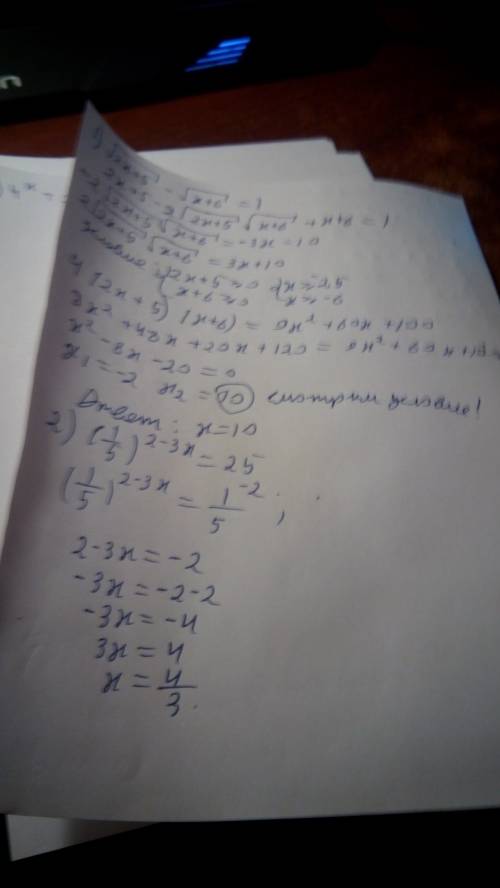 1) √2x+5 - √x+6 = 1
2x+5 - 2√2x+5 √x+6 + x+6 = 1
-2√2x+5 √x+6 = -3x-10
2√2x+5 √x+6 = 3x+10
2x+5≥0 x≥-2,5
x+6≥0 x≥-6
4(2x+5)(x+6) = 9x² + 60x + 100
8x² + 48x + 20x + 120 = 9x² + 60x + 100
x² - 8x - 20 = 0
x₁ = -2 x₂ = 10 смотрим условие!
Ответ: x=10
2) (1/5)^2-3x = 25
(1/5)^2-3x = 1/5^-2 ;
2-3x = -2
-3x = -2-2
-3x = -4
3x = 4
x = 4/3.